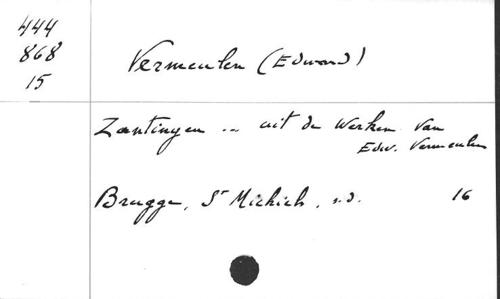 444
868
15
Vermeulen (Edward)
Zantingen ... uit de Werken van
Edw. Vermeulen
Brugge, St Michiels, s.d. 16